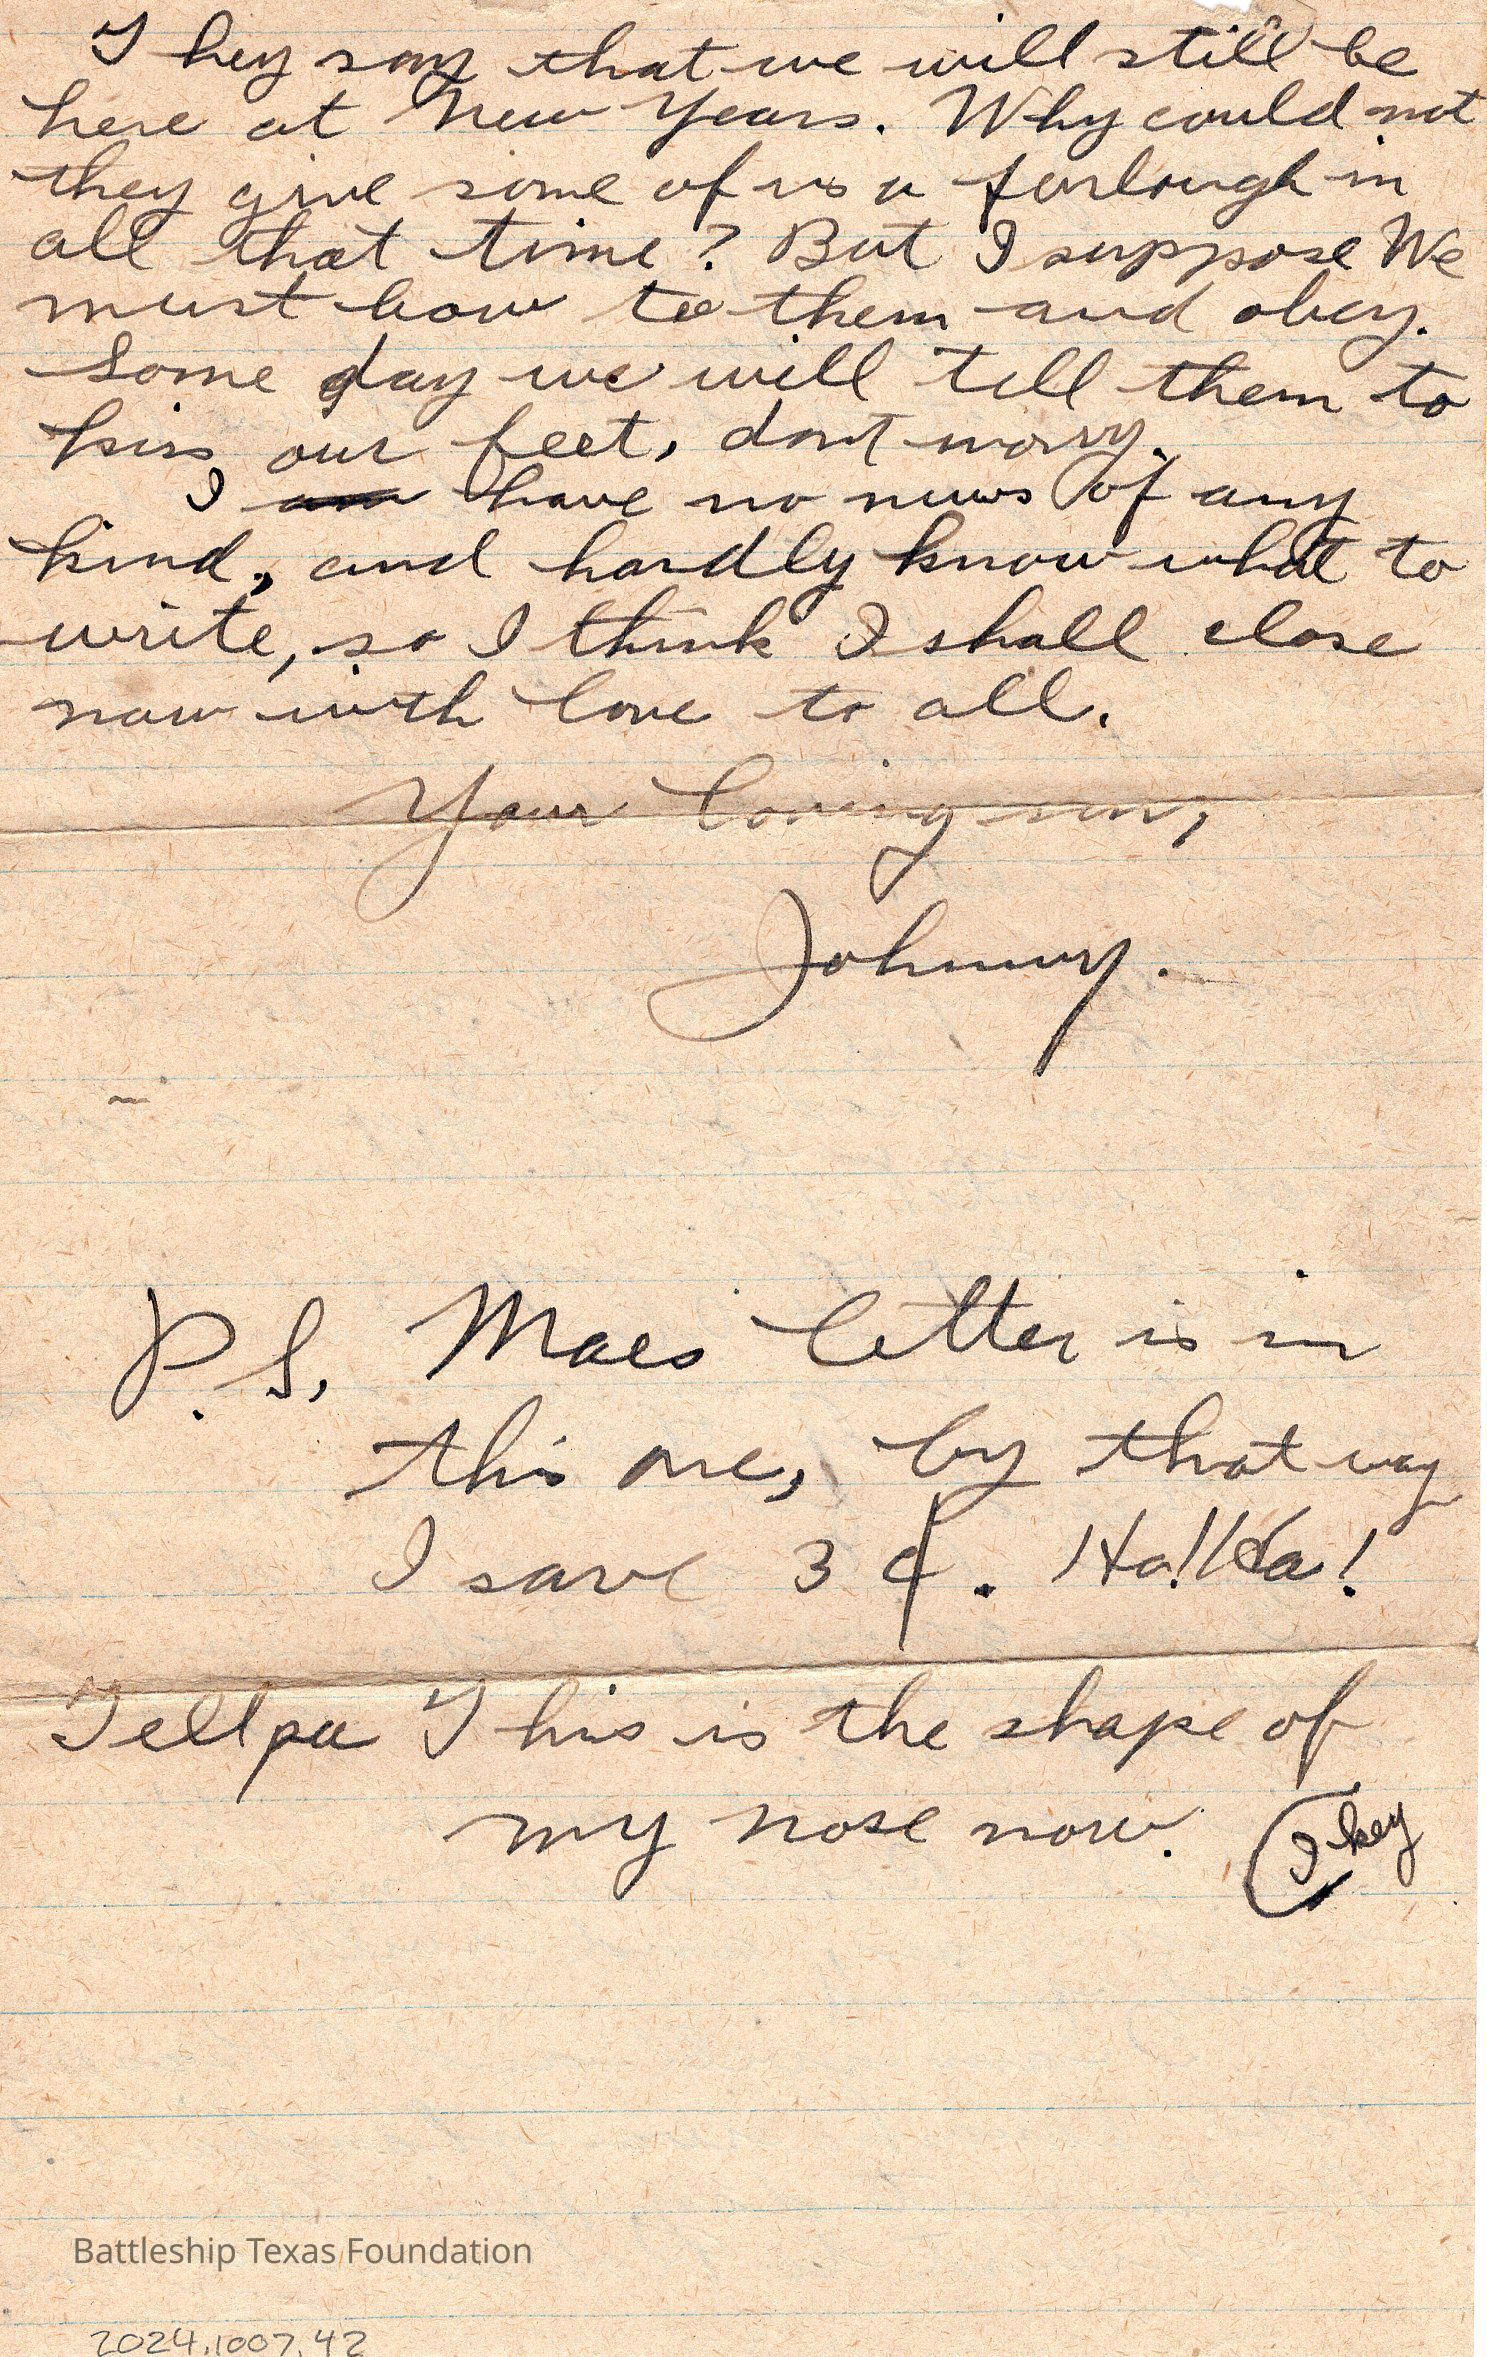 They say that we will still be
here at New Years. Why could not
they give some of us a furlough in
all that time? But I suppose We
must bow to them and obey.
Some day we will tell them to
kiss our feet, dont worry.
I have no news of any
kind, and hardly know what to
write, so I think I shall close
now with love to all.
Your loving son,
Johnny.
P.S. Maes letter is in
this one, by that way
I save 3 ¢. Ha! Ha!
Tell pa This is the shape of
my nose now. Ikey
Battleship Texas Foundation
2024.1007.42